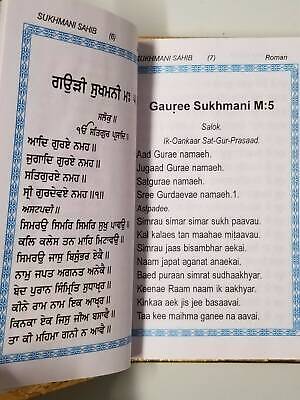 SUKHMANI SAHIB (6)
ਗਉੜੀ ਸੁਖਮਨੀ ਮਃ
ਸਲੋਕੁ ॥
ੴ ਸਤਿਗੁਰ ਪ੍ਰਸਾਦਿ ॥
ਆਦਿ ਗੁਰਏ ਨਮਹ ॥
ਜੁਗਾਦਿ ਗੁਰਏ ਨਮਹ ॥
ਸਤਿਗੁਰਏ ਨਮਹ ॥
ਸ੍ਰੀ ਗੁਰਦੇਵਏ ਨਮਹ ॥੧॥
ਅਸਟਪਦੀ ॥
ਸਿਮਰਉ ਸਿਮਰਿ ਸਿਮਰਿ ਸੁਖੁ ਪਾਵਉ ॥
ਕਲਿ ਕਲੇਸ ਤਨ ਮਾਹਿ ਮਿਟਾਵਉ ॥
ਸਿਮਰਉ ਜਾਸੁ ਬਿਸੁੰਭਰ ਏਕੈ ॥
ਨਾਮੁ ਜਪਤ ਅਗਨਤ ਅਨੇਕੈ ॥
ਬੇਦ ਪੁਰਾਨ ਸਿੰਮ੍ਰਿਤਿ ਸੁਧਾਖੵਰ ॥
ਕੀਨੇ ਰਾਮ ਨਾਮ ਇਕ ਆਖੵਰ ॥
ਕਿਨਕਾ ਏਕ ਜਿਸੁ ਜੀਅ ਬਸਾਵੈ ॥
ਤਾ ਕੀ ਮਹਿਮਾ ਗਨੀ ਨ ਆਵੈ ॥
SUKHMANI SAHIB (7) Roman
Gauṛee Sukhmani M:5
Salok.
Ik-Oankaar Sat-Gur-Prasaad.
Aad Gurae namaeh.
Jugaad Gurae namaeh.
Satgurae namaeh.
Sree Gurdaevae namaeh.1.
Astpadee.
Simrau simar simar sukh paavau.
Kal kalaes tan maahae miṭaavau.
Simrau jaas bisambhar aekai.
Naam japat aganat anaekai.
Baed puraan simrat sudhaakhyar.
Keenae Raam naam ik aakhyar.
Kinkaa aek jis jee basaavai.
Taa kee mahima ganee na aavai.